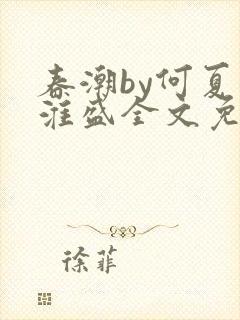 春潮by何夏
淮盛全文免
徐菲